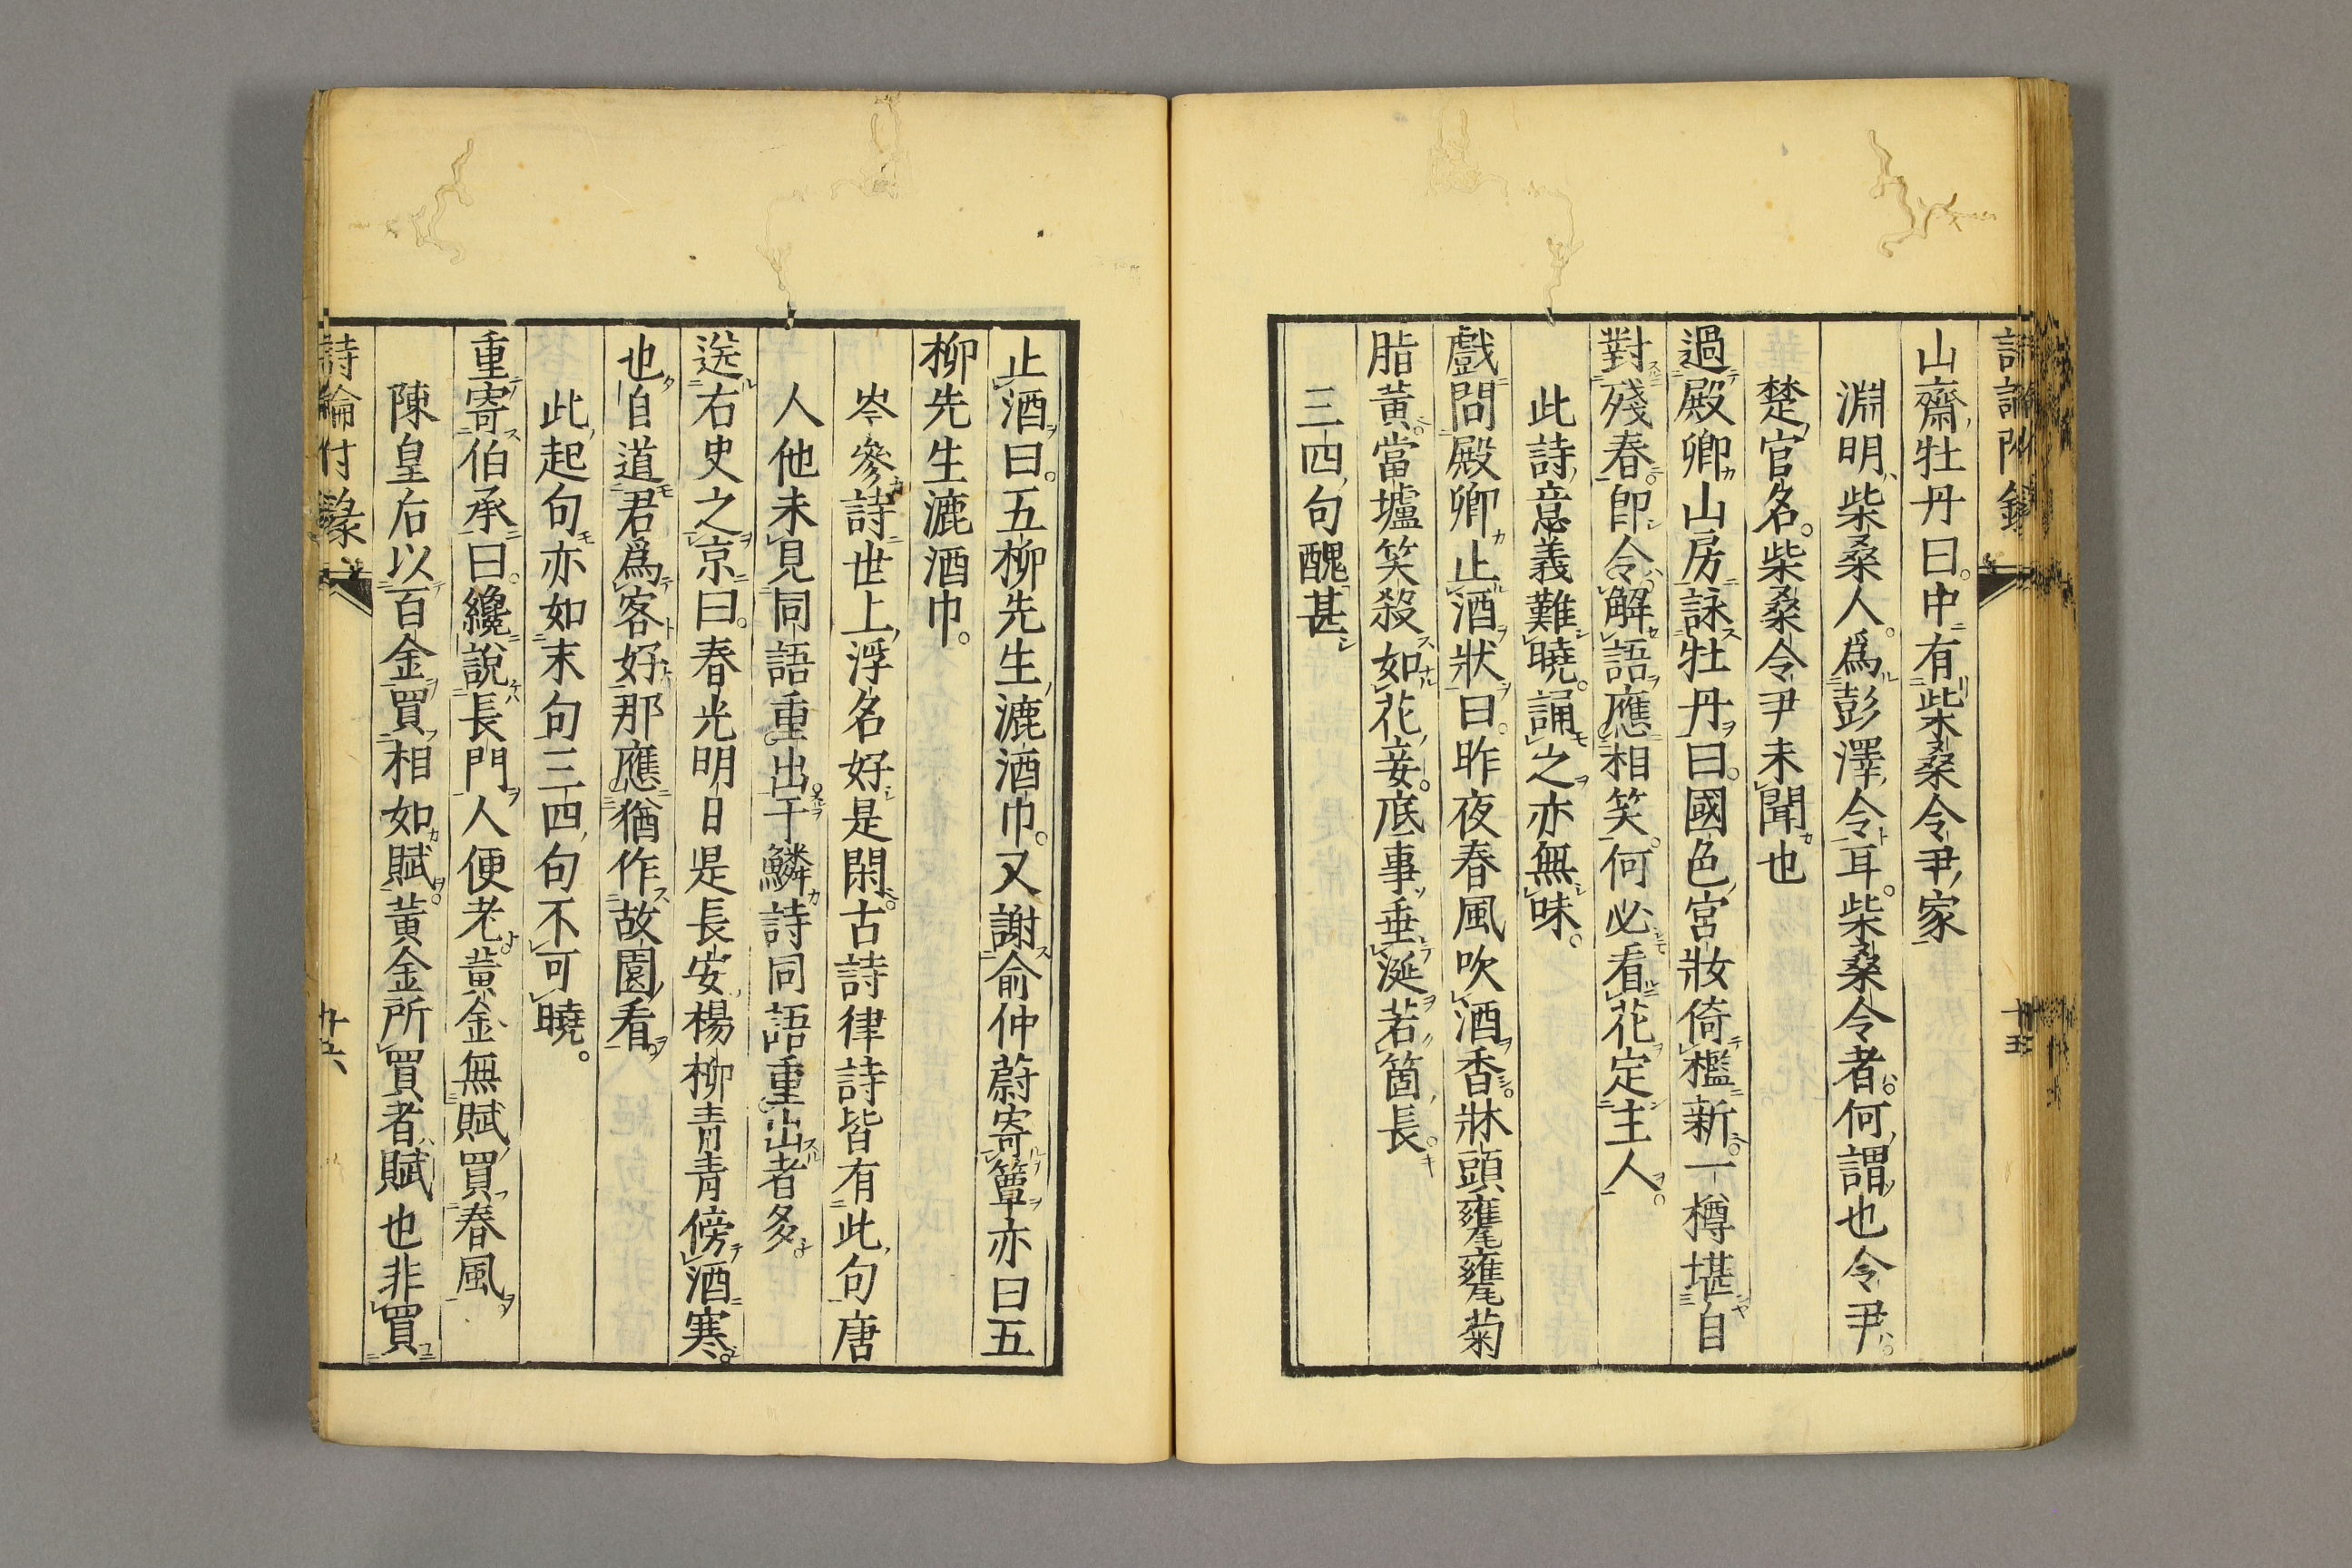 詩論附錄
廿五
山齋牡丹曰。中有柴桑令尹家
淵明柴桑人。爲彭澤令耳。柴桑令者。何謂也令尹。
楚官名。柴桑令尹未聞也
過殿卿山房詠牡丹曰。國色宮妝倚檻新。一樽堪自
對殘春。卽令解語應相笑。何必看花定主人。
此詩意義難曉。誦之亦無味。
戲問殿卿止酒狀曰。昨夜春風吹酒香。牀頭甕甕菊
脂黃。當壚笑殺如花妾。底事垂涎若箇長。
三四句醜甚
止酒曰。五柳先生漉酒巾。又謝俞仲蔚寄簟亦曰五
柳先生漉酒巾。
岑參詩世上浮名好是閑。古詩律詩皆有此句唐
人他未見同語重出。于鱗詩同語重出者多。
送右史之京曰。春光明日是長安。楊柳青青傍酒寒。
也自道君爲客好。那應猶作故園看。
此起句亦如末句三四句不可曉。
重寄伯承曰。纔說長門人便老。黃金無賦買春風。
陳皇后以百金買相如賦。黃金所買者賦也非買
詩論附錄
廿六